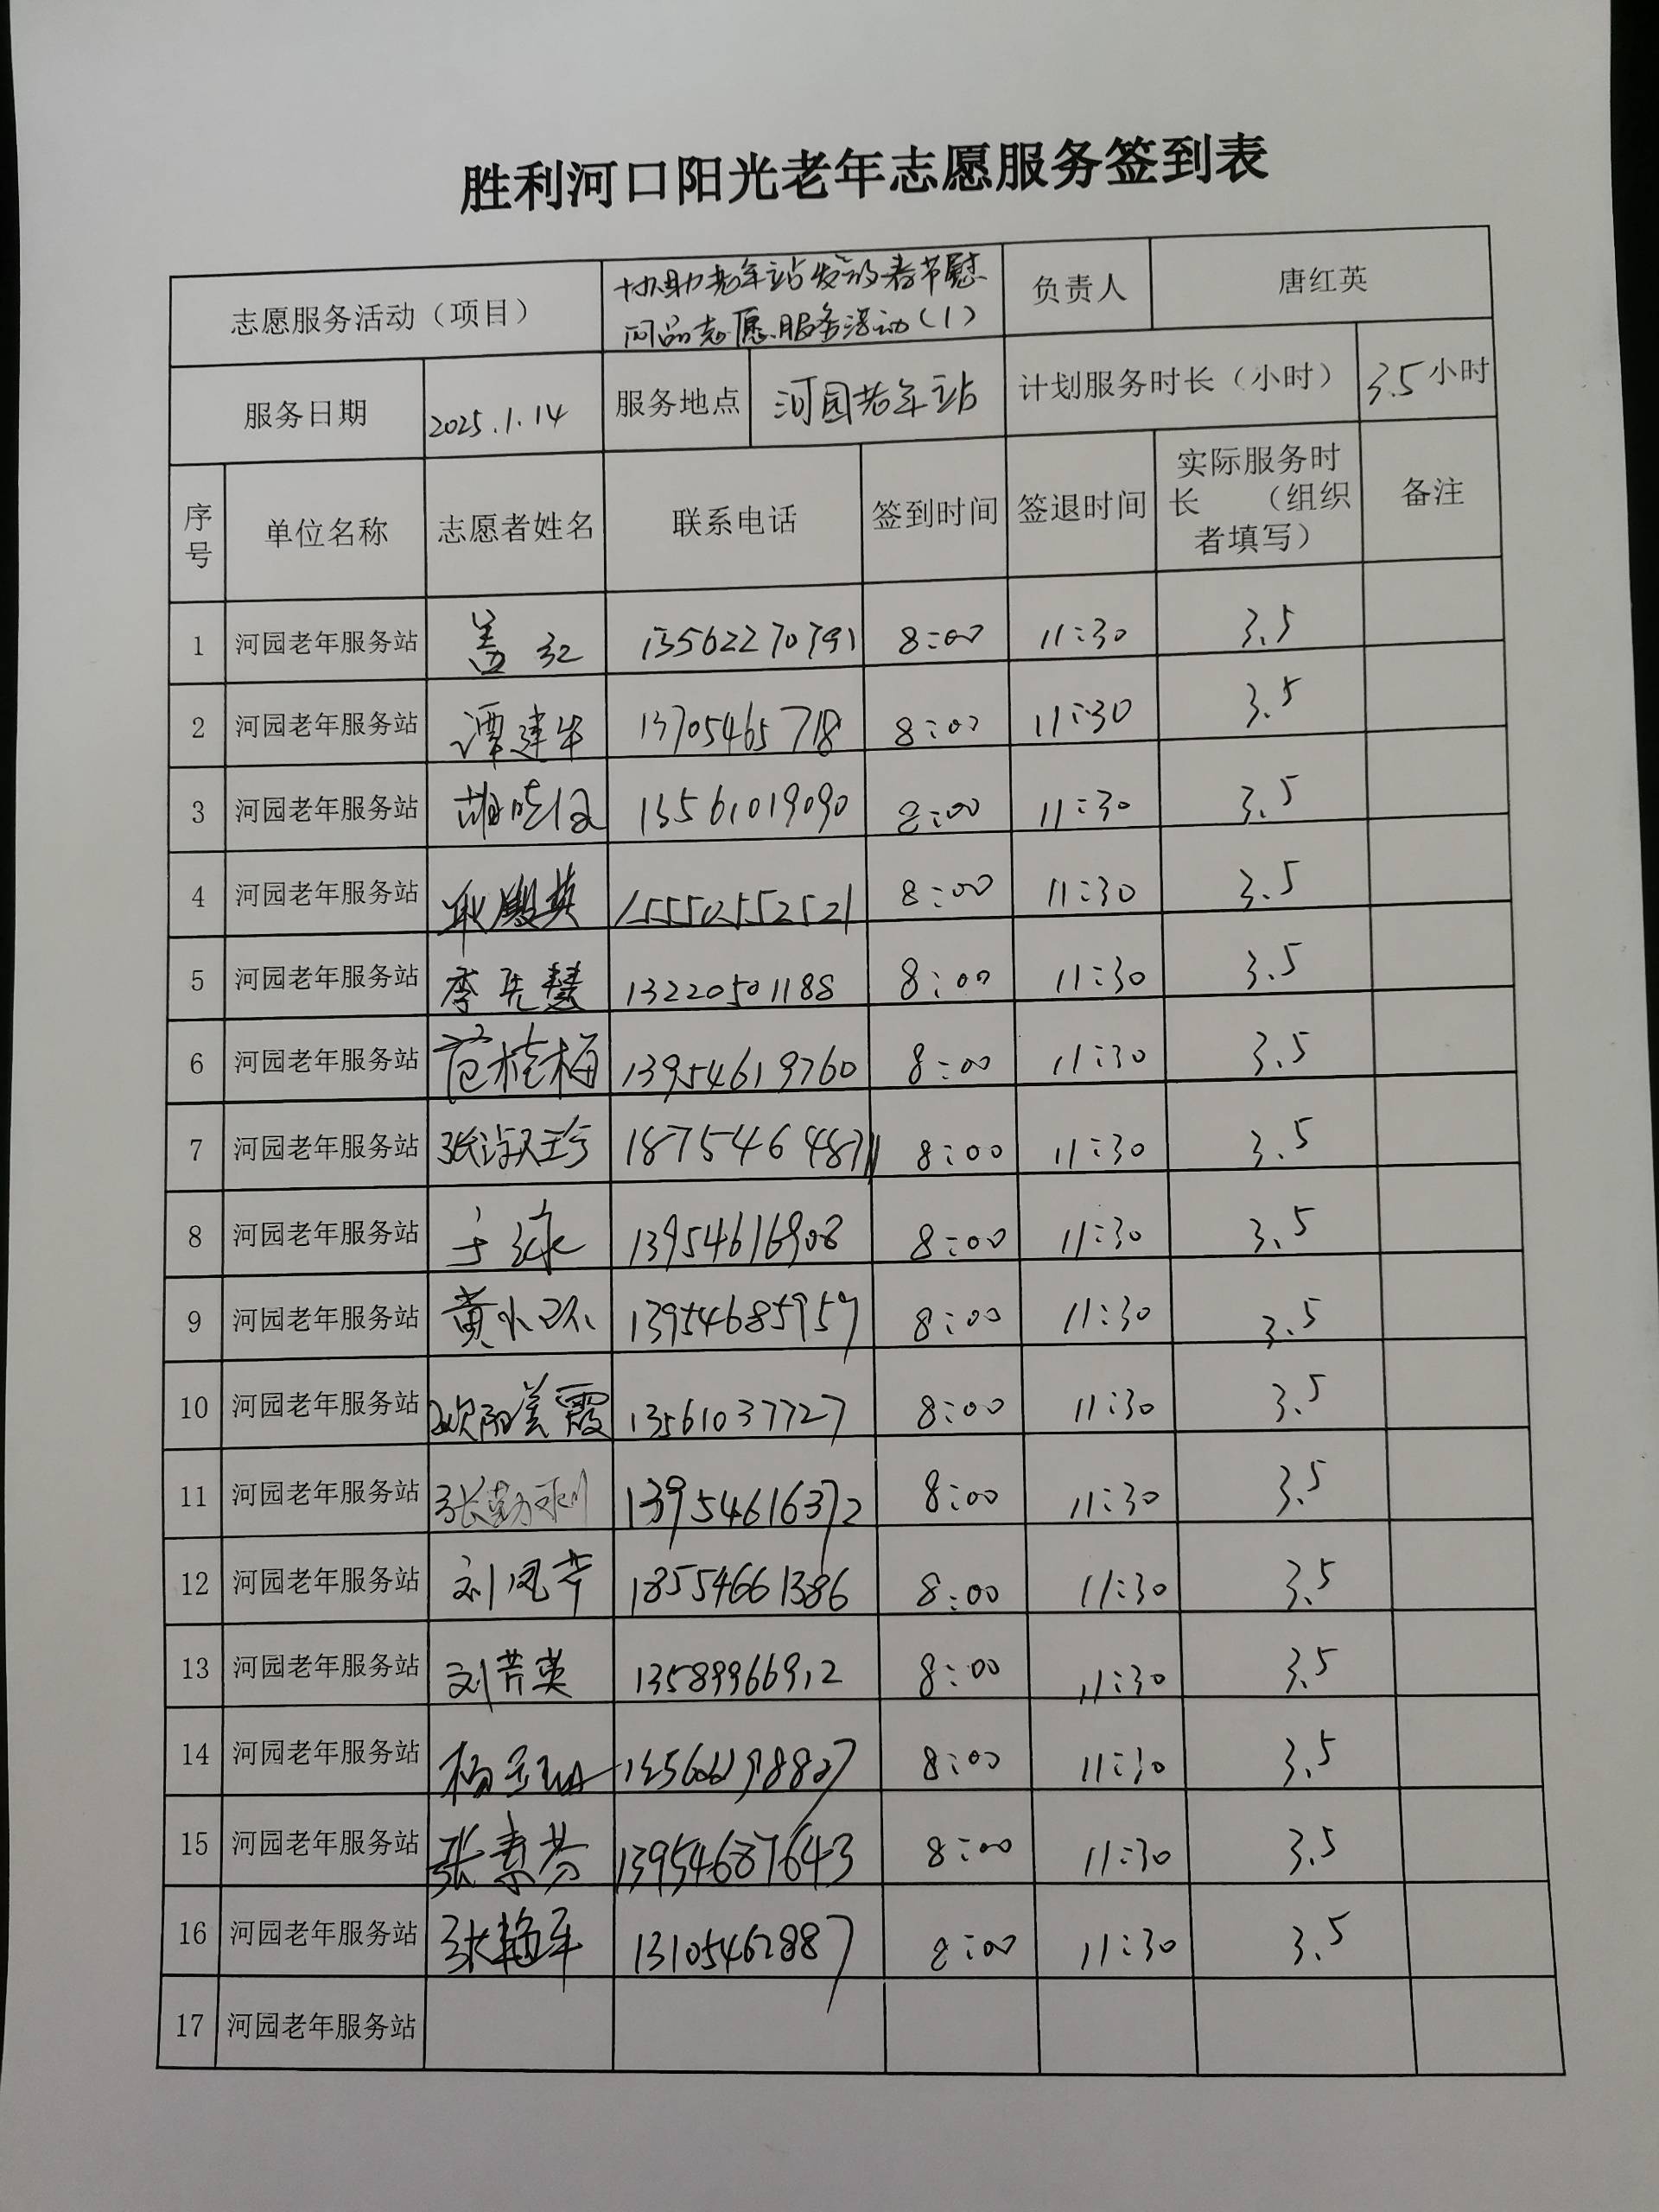 胜利河口阳光老年志愿服务签到表
志愿服务活动（项目） 协助老年站发放春节慰问品志愿服务活动（1） 负责人 唐红英
服务日期 2025.1.14 服务地点 河园老年站 计划服务时长（小时） 3.5小时
序号 单位名称 志愿者姓名 联系电话 签到时间 签退时间 实际服务时长（组织者填写） 备注
1 河园老年服务站 盖红 13562270791 8:00 11:30 3.5
2 河园老年服务站 谭建华 13705465718 8:00 11:30 3.5
3 河园老年服务站 13561019090 8:00 11:30 3.5
4 河园老年服务站 15550555252 8:00 11:30 3.5
5 河园老年服务站 李先慧 13220501188 8:00 11:30 3.5
6 河园老年服务站 范桂梅 13954619760 8:00 11:30 3.5
7 河园老年服务站 张淑珍 8:00 11:30 3.5
8 河园老年服务站 13954616908 8:00 11:30 3.5
9 河园老年服务站 黄小环 13954685957 8:00 11:30 3.5
10 河园老年服务站 欧阳美霞 13561037727 8:00 11:30 3.5
11 河园老年服务站 张勤利 13954616372 8:00 11:30 3.5
12 河园老年服务站 刘凤芹 18554661386 8:00 11:30 3.5
13 河园老年服务站 刘芳英 13589966912 8:00 11:30 3.5
14 河园老年服务站 8:00 11:30 3.5
15 河园老年服务站 张素芬 13954687643 8:00 11:30 3.5
16 河园老年服务站 张艳军 13105462887 8:00 11:30 3.5
17 河园老年服务站